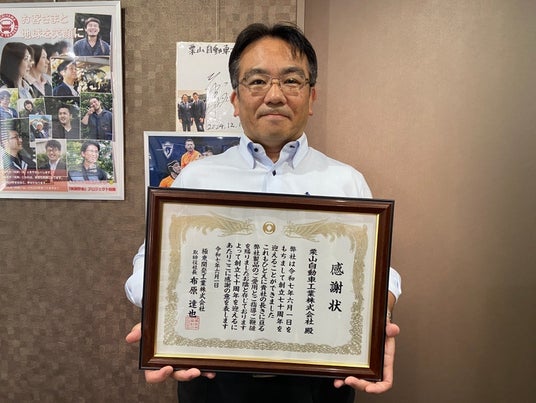 お客さまと
地球を笑顔に
栗山自動車
2024.12.
感謝状
栗山自動車工業株式会社 殿
弊社は令和七年六月一日を
もちまして創立七十周年を
迎えることができました
これもひとえに貴社の長きに亘る
弊社製品のご愛用とご指導ご鞭撻
を賜りましたお陰と存じております
よって創立七十周年を迎えるに
あたりここに感謝の意を表します
令和七年六月一日
極東開発工業株式会社
取締役社長 布原達也